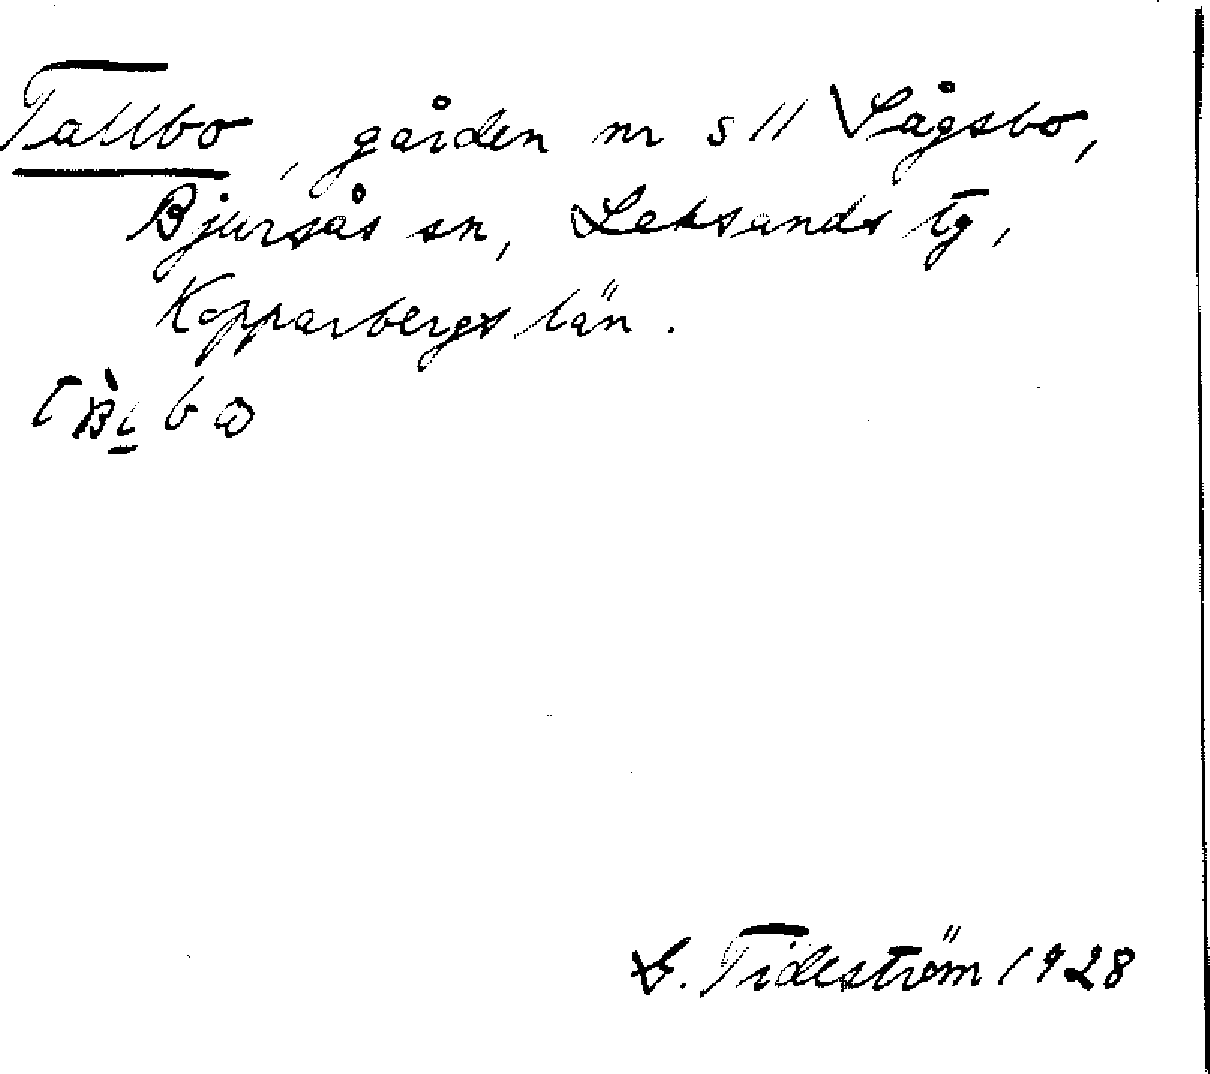 Tallbo, gården nr 5 // Lågsbo,
Bjursås sn, Leksands tg,
Kopparbergs län.
G. Tideström 1928